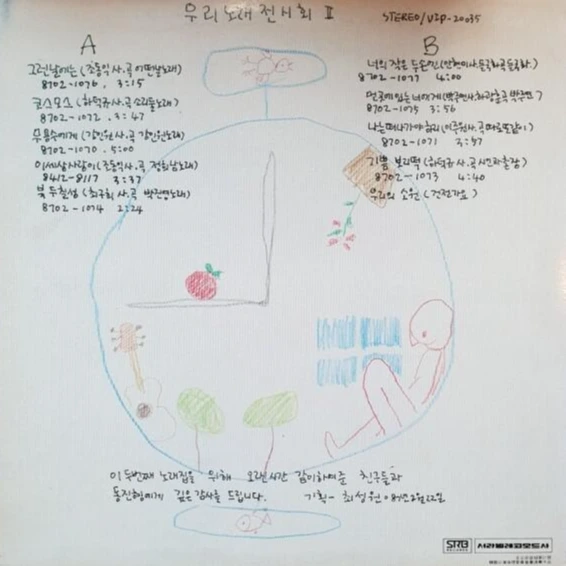 우리노래전시회 II
STEREO/VIP-20035
A
그런날에는 (조동익 사.곡 어떤날노래)
8702-1076, 3:15
코스모스 (하덕규 사.곡 노래)
8702-1072, 3:47
무용수에게 (강인원 사.곡 강인원노래)
8702-1070, 5:00
이세상사람이 (조동익 사.곡 정희남노래)
8412-8117 3:37
북두칠성 (최구희 사.곡 박진영노래)
8702-1074 2:24
B
너의 작은 두손엔
8702-1077 4:00
먼곳에있는 너에게 (박주연사 최광훈곡 박주연)
8702-1075 3:56
나는떠나가야하리 (이주원사.곡 따로또같이)
8702-1071 3:37
기쁨 보리떡 (하덕규 사.곡 시인과촌장)
8702-1073 4:40
우리의 소원 (건전가요)
이 두번째 노래집을 위해 오랜시간 같이하여준 친구들과
동진형에게 깊은 감사를 드립니다. 기획- 최성원 87년2월22일
SRB
RECORDS
서라벌레코드사